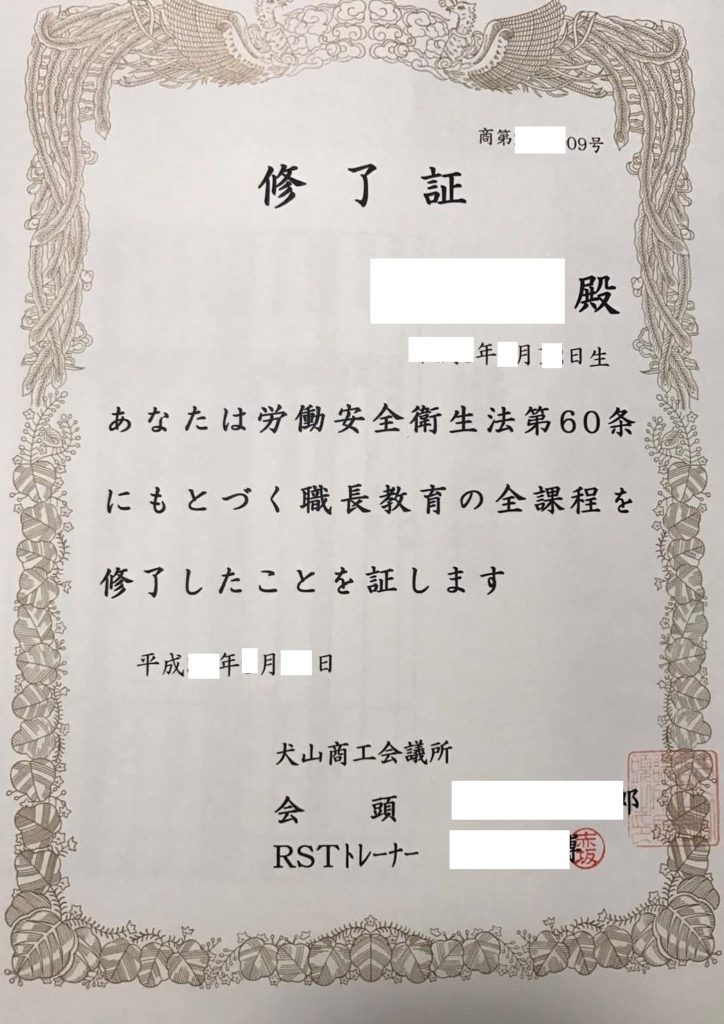 商第 09号
修了証
殿
年 月 日生
あなたは労働安全衛生法第60条
にもとづく職長教育の全課程を
修了したことを証します
平成 年 月 日
犬山商工会議所
会頭 郎
RSTトレーナー 博
赤坂